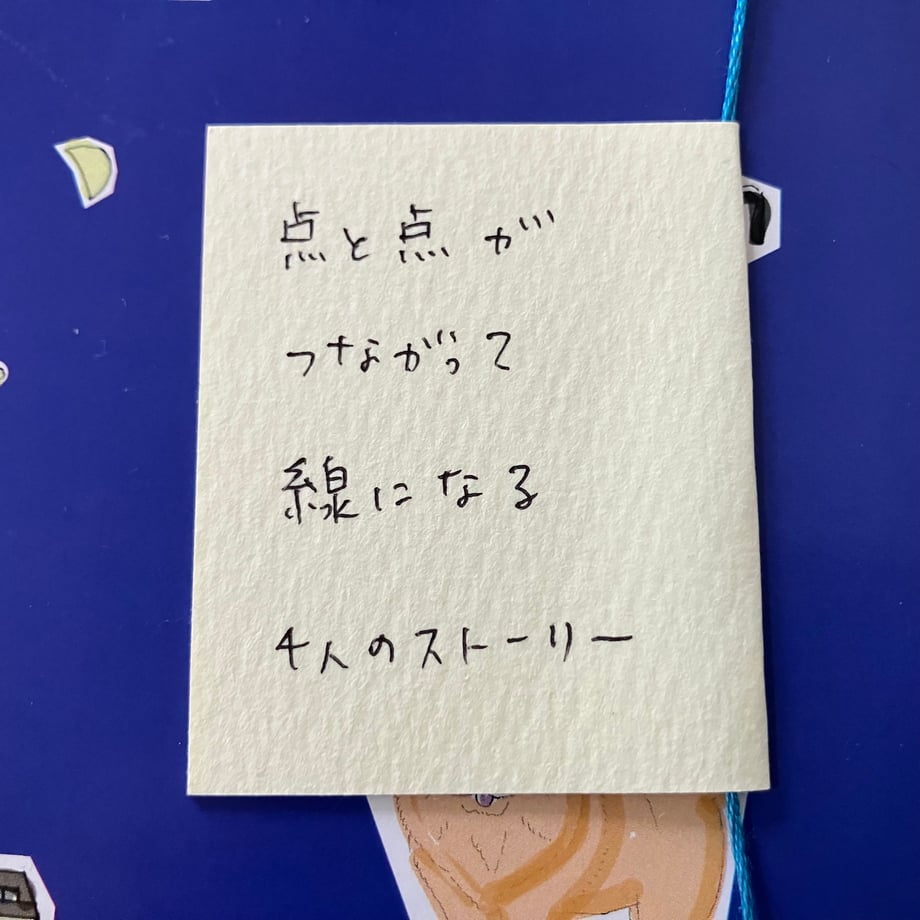 点と点が
つながって
線になる
4人のストーリー